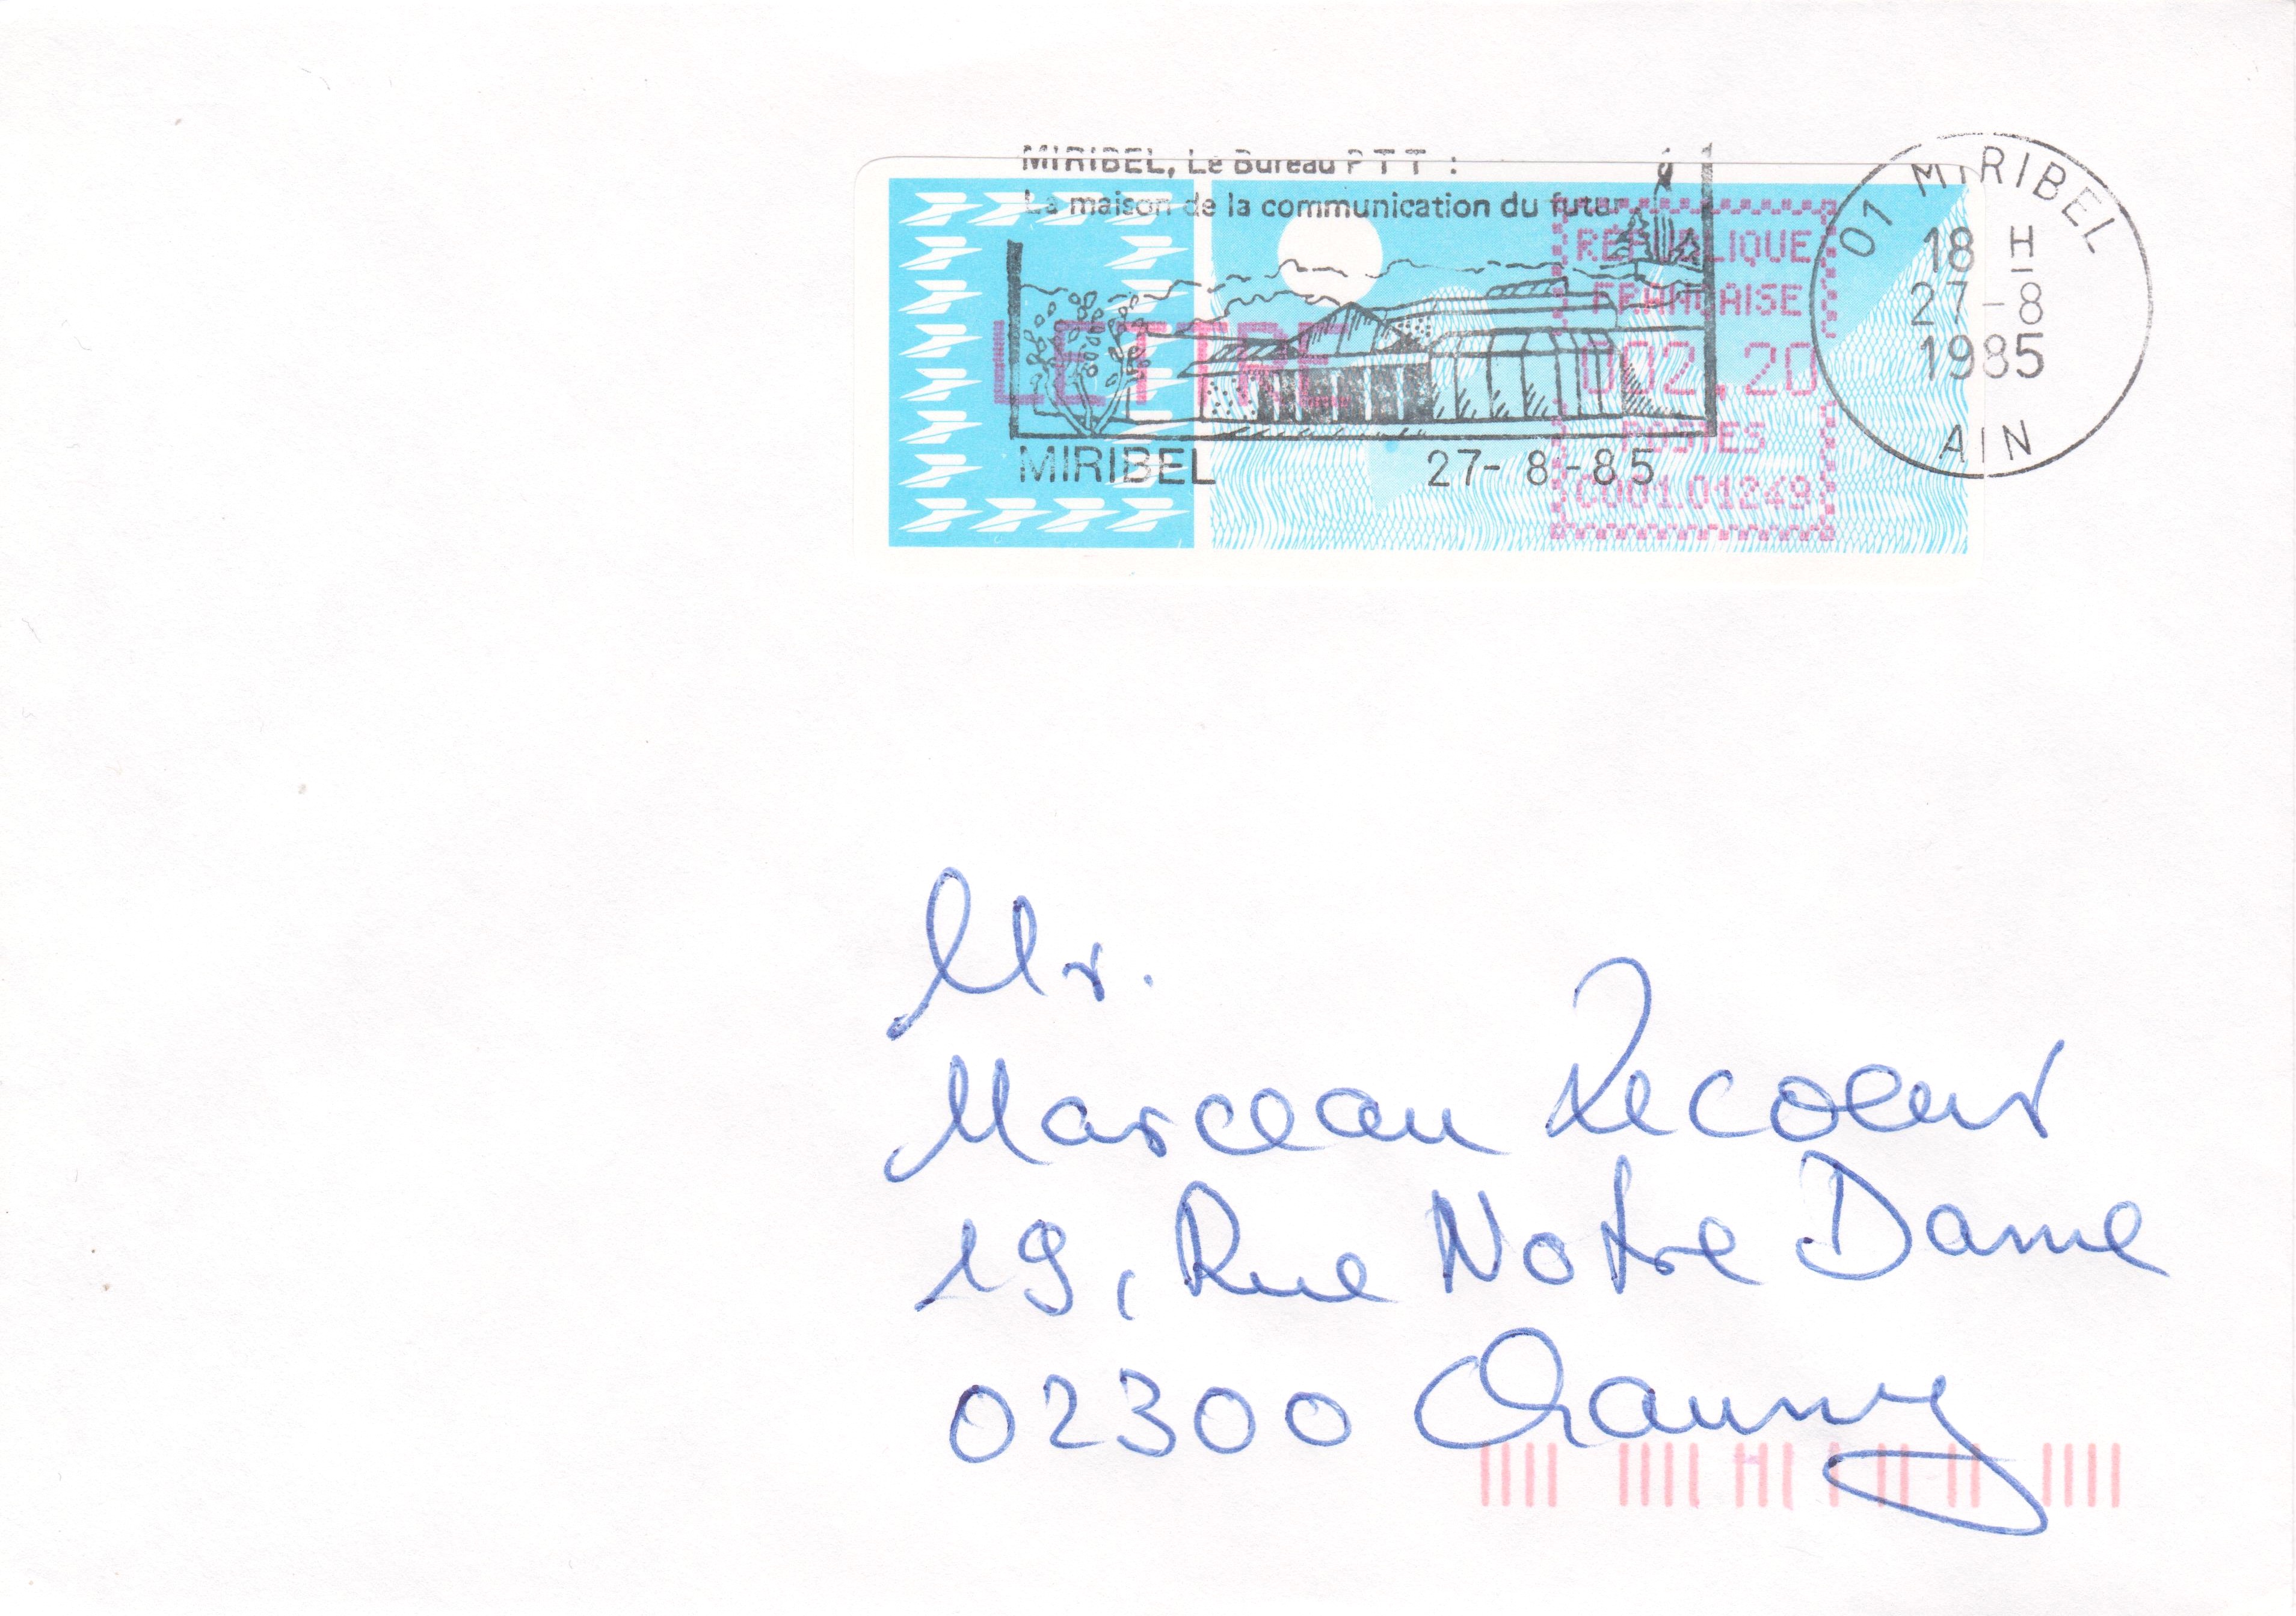 MIRIBEL, Le Bureau PTT :
La maison de la communication du futur
LETTRE
RÉPUBLIQUE
FRANÇAISE
002,20
POSTES
C001.01249
MIRIBEL 27-8-85
01 MIRIBEL
18 H
27-8
1985
AIN
Mr.
Marceau Lecoeur
19, Rue Notre Dame
02300 Chauny